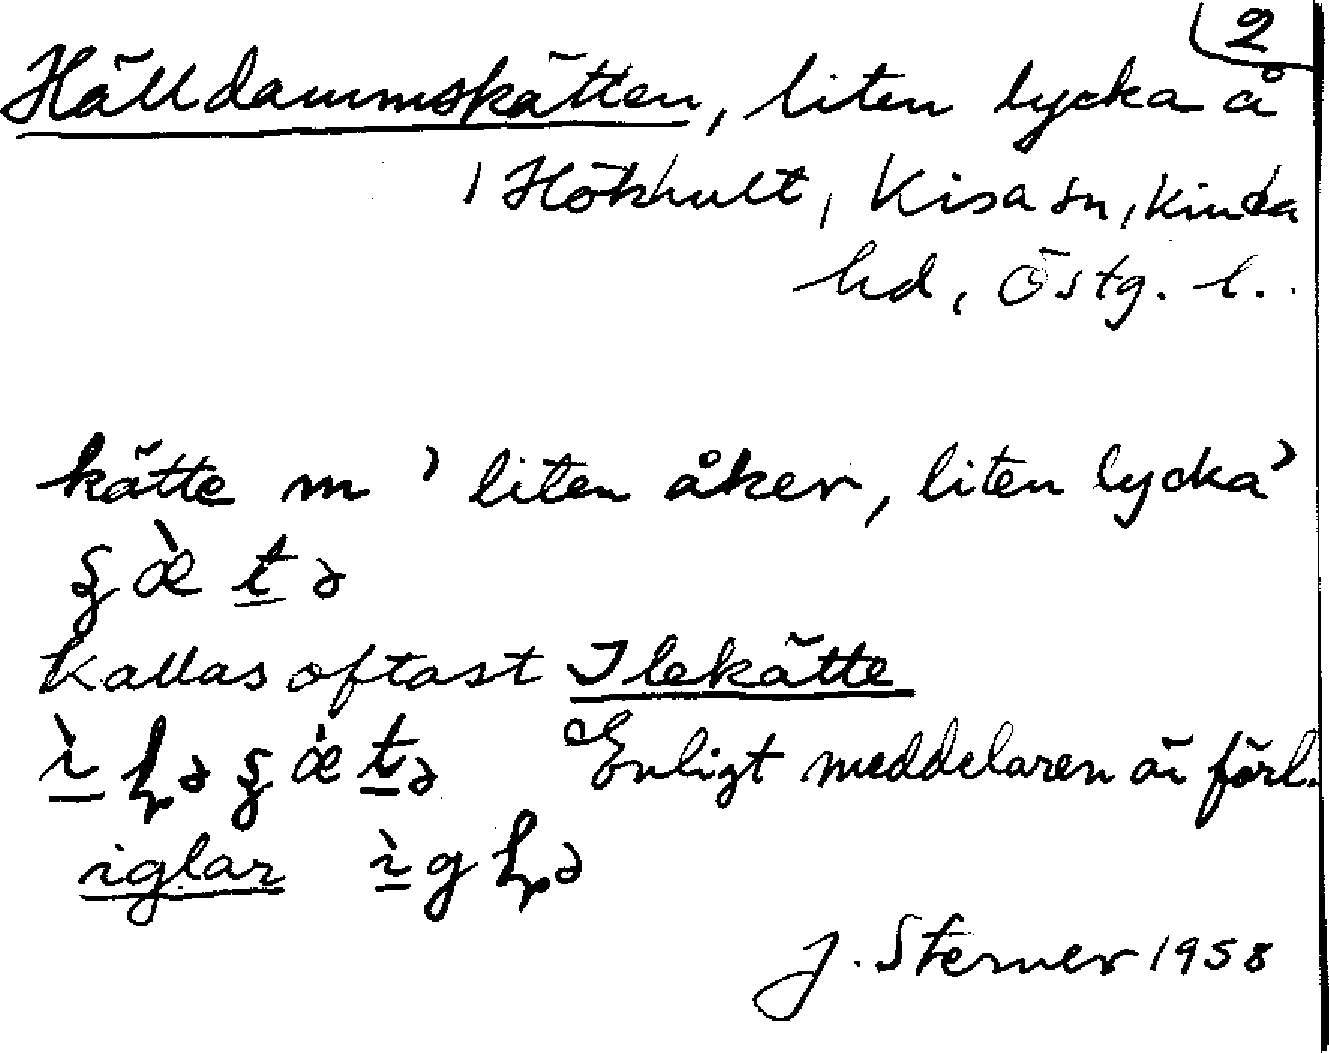 2
Hälldammskätten, liten lycka å
Hökhult, Kisa sn, Kinda
hd, Östg. l.
kätte m ' liten åker, liten lycka'
kallas oftast Ilekätte
Enligt meddelaren är förl.
iglar
J. Sterner 1958